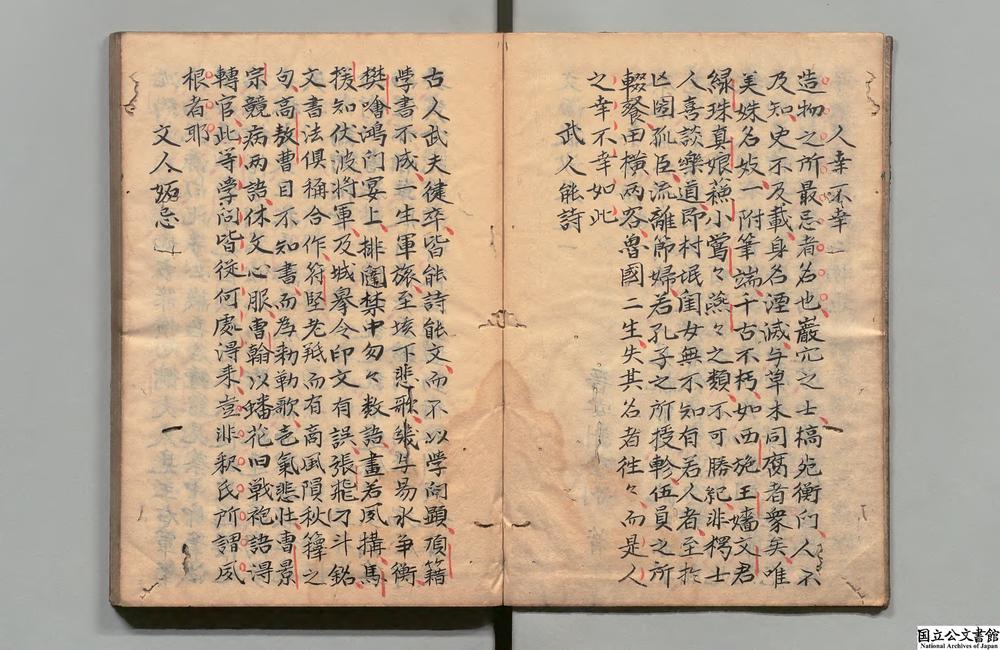 人幸不幸
造物之所最忌者名也巖穴之士槁死衡門人不
及知史不及載身名湮滅与草木同腐者衆矣唯
美姝名妓一附筆端千古不朽如西施王嬙文君
緑珠真娘蘓小鶯々燕々之類不可勝紀非樗士
人喜談樂道即村氓閨女無不知有若人者至於
凶固孤臣流離節婦若孔子之所授軫伍員之所
輟餐田横两客魯國二生失其名者往々而是人
之幸不幸如此
武人能詩
古人武夫健卒皆能詩能文而不以学问顕項籍
學書不成一生軍旅至垓下悲歌幾与易水争衡
樊噲鴻门宴上排闥禁中匆々数語畫若夙搆馬
援知伏波将軍及城皋令印文有誤張飛刁斗銘
文書法俱稱合作符堅老羝而有高風隕秋籜之
句高敖曹目不知書而為勅勒歌壱氣悲壮曹景
宗競病两語休文心服曹翰以蟠花旧戦袍語得
轉官此等学问皆従何處得来豈非釈氏所謂夙
根者耶
文人 忌
国立公文書館
National Archives of Japan